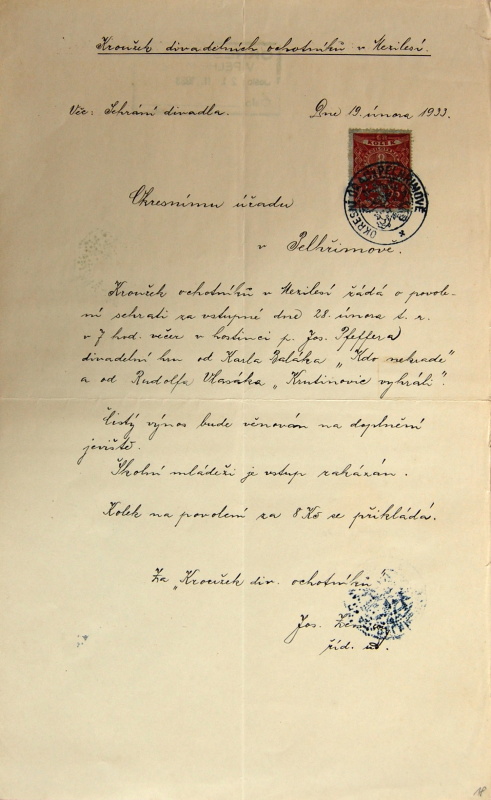 Kroužek divadelních ochotníků v Mezilesí.
Věc: Sehrání divadla.
Dne 19. února 1933.
KOLEK
OKRESNÍ ÚŘAD V PELHŘIMOVĚ
Okresnímu úřadu
v Pelhřimově.
Kroužek ochotníků v Mezilesí žádá o povole-
ní sehrati za vstupné dne 28. února t. r.
v 7 hod. večer v hostinci p. Jos. Pfeffera
divadelní hru od Karla Baláka „Kdo nekrade"
a od Rudolfa Vlasáka „Krutinovic vyhráli".
Čistý výnos bude věnován na doplnění
jeviště.
Školní mládeži je vstup zakázán.
Kolek na povolení za 8 Kč se přikládá.
Za „Kroužek div. ochotníků"
Jos.
říd. uč.